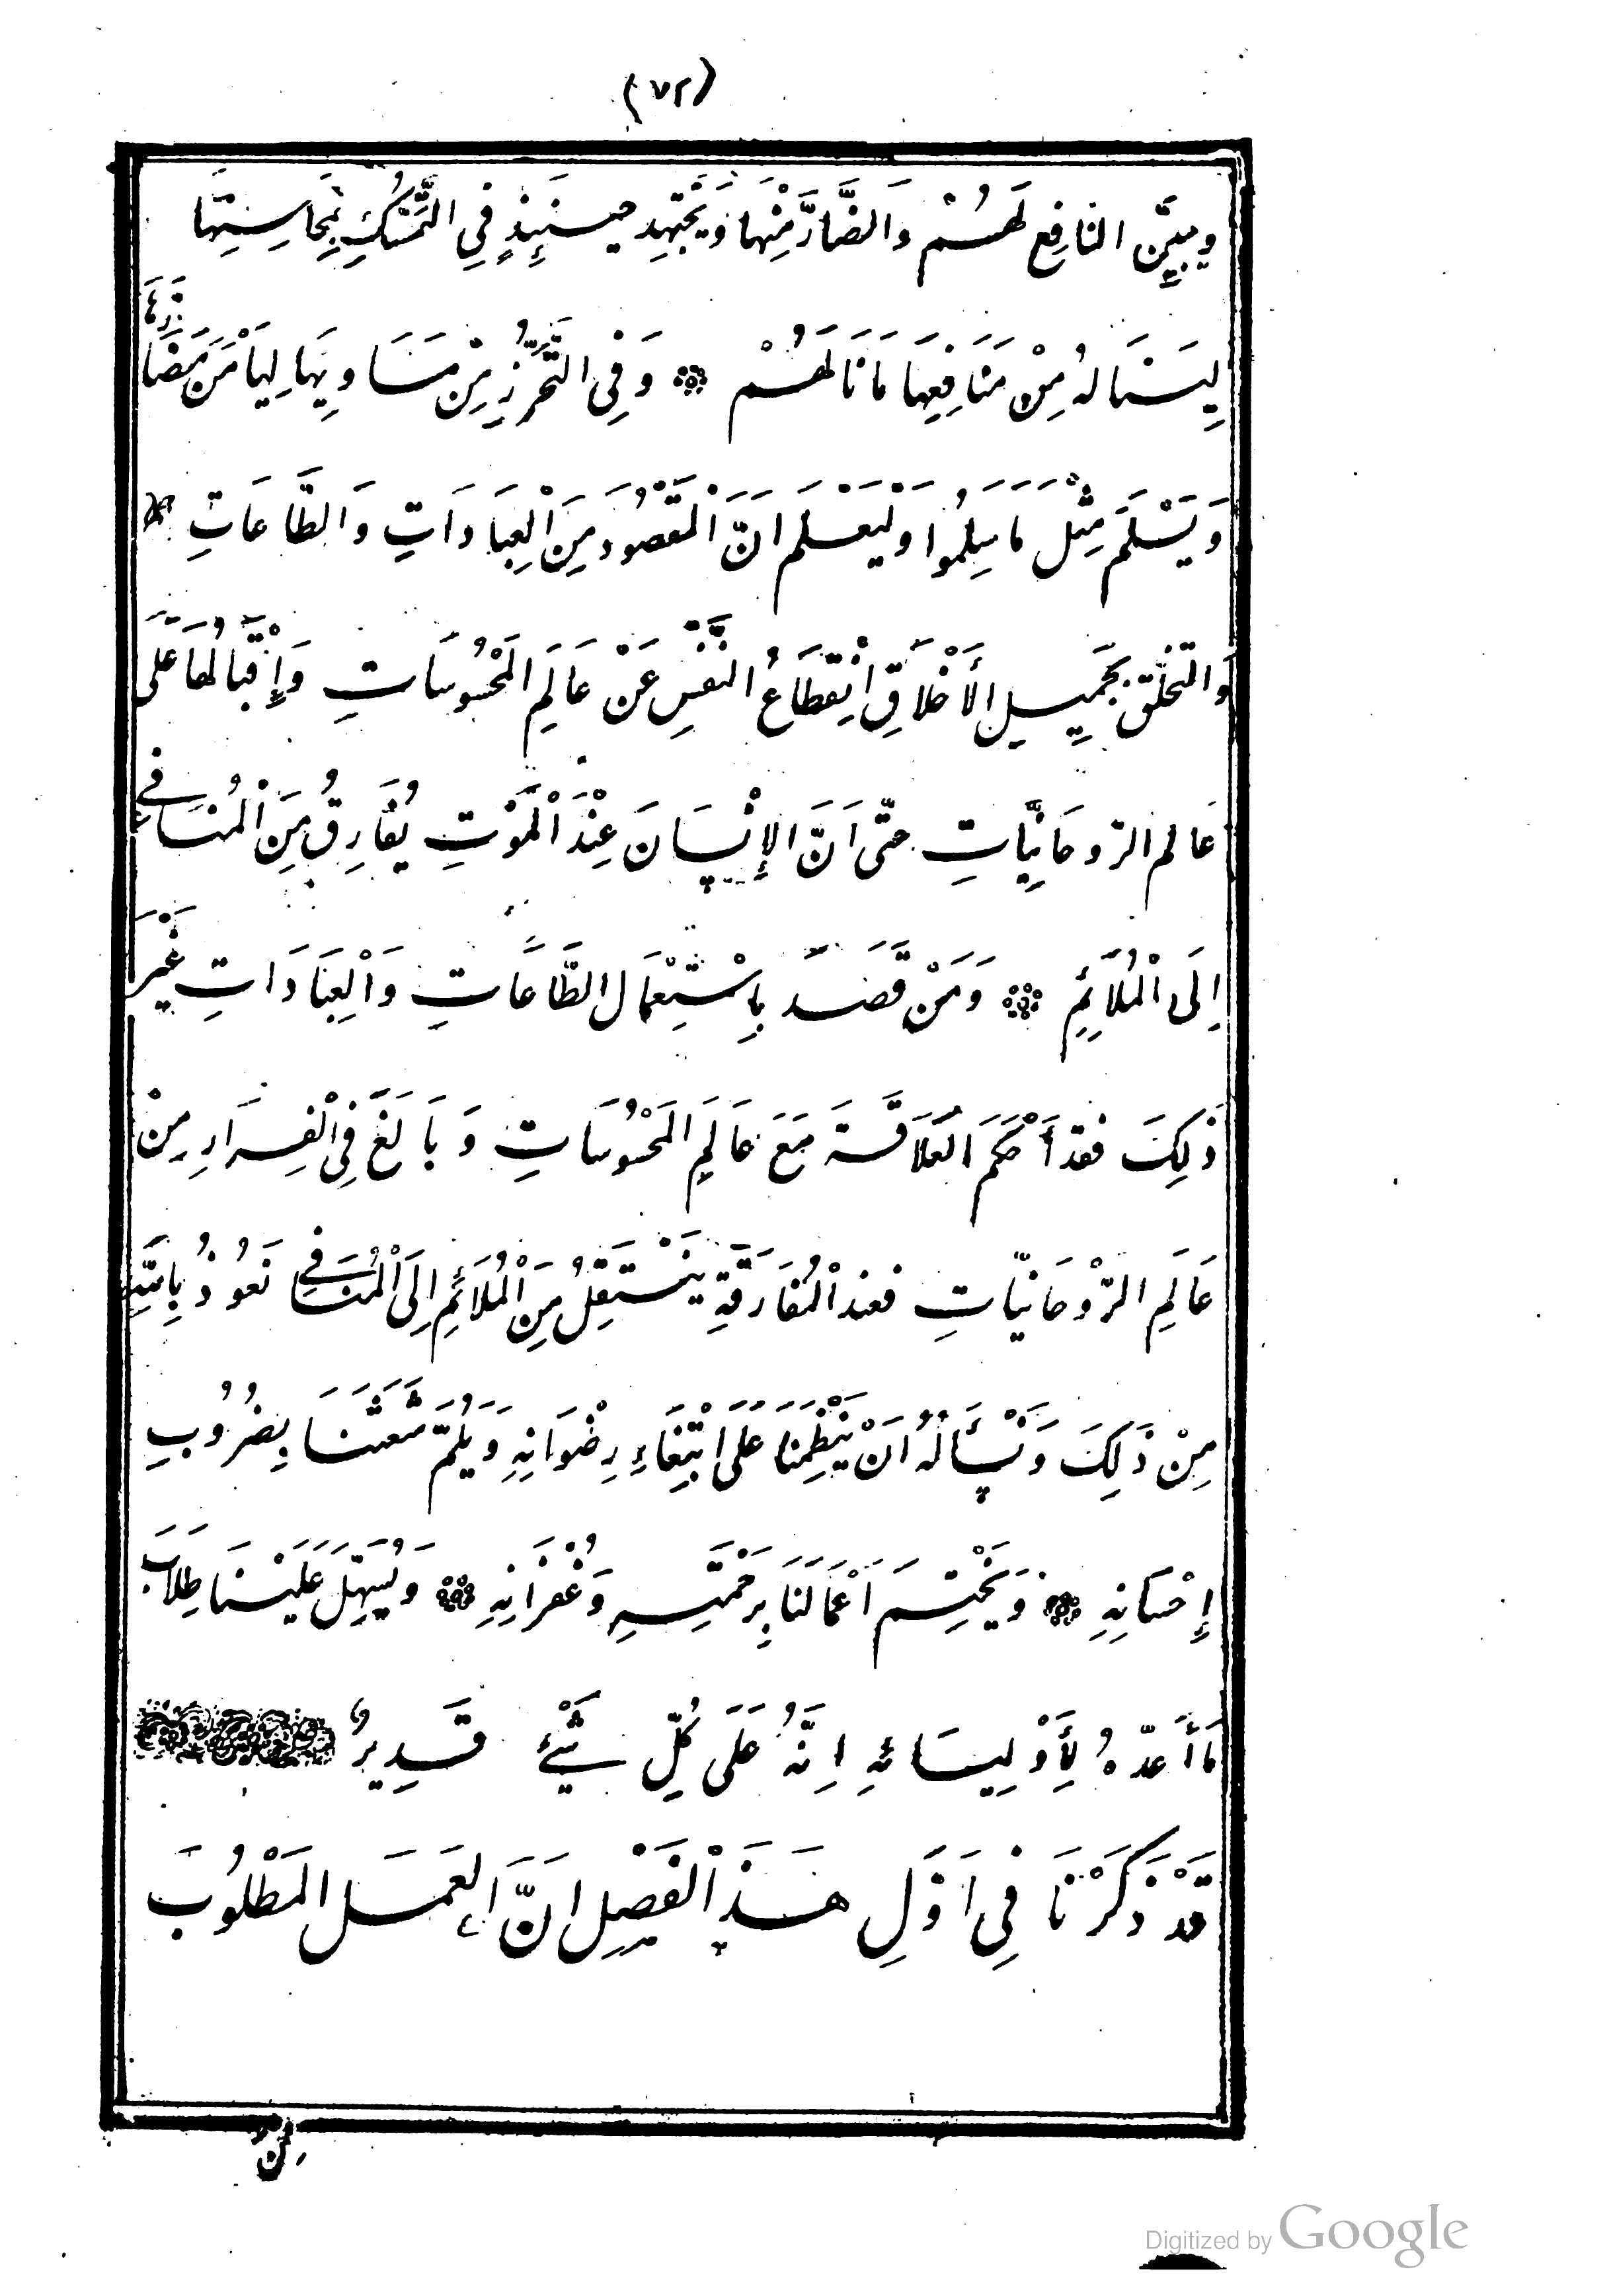 (٧٢)
وَيبيِّن النافِع لَهُمْ وَالضَّارَّ مِنْهَا وَيَجْتَهِد حِينَئِذٍ فِي التَّمَسُّكِ بِمَحَاسِنِهَا
لِيَنَالهُ مِنْ مَنَافِعِهَا مَا نَالَهُمْ وَفِى التَّحَرُّزِ مِنْ مَسَاوِيهَا لِيَأْمَنَ مَضَارَّهَا
وَيَسْلَمَ مِثْل مَا سَلِمُوا وَلْيَعْلَم انَّ الْمَقْصُودَ مِنَ الْعِبَادَاتِ وَالطَّاعَاتِ
وَالتخلّق بِجَمِيلِ الأَخْلاَقِ انْقِطَاعُ النفْسِ عَنْ عَالَمِ المَحْسُوسَاتِ وَإِقْبَالُهَا عَلَى
عَالم الرّوحَانِيَّاتِ حتّى اَنَّ الإِنْسَانَ عِنْدَ الْمَوْتِ يُفَارِقُ مِنَ الْمُنَافِي
اِلَى الْمُلاَئِمِ وَمَنْ قَصَدَ بِاسْتِعْمَالِ الطَّاعَاتِ وَالْعِبَادَاتِ غَيْرَ
ذَلِكَ فقد أَحْكَمَ العَلاَقَةَ مَعَ عَالَمِ المَحْسُوسَاتِ وَبَالَغَ فِى الْفِرَارِ مِنْ
عَالَمِ الرّوْحَانيّاتِ فعند الْمُفَارَقَةِ يَنْتَقِلُ مِنَ الْمُلاَئِمِ اِلَى الْمُنَافِي نَعُوذُ بِاللهِ
مِنْ ذَلِكَ وَنَسْأَلُهُ انْ يَنْظِمَنَا عَلَى ابْتِغَاءِ رِضْوَانِهِ وَيَلُمَّ شَعَثَنَا بِضُرُوبِ
إِحْسَانِهِ وَيَخْتِمَ اَعْمَالَنَا بِرَحْمَتِهِ وَغُفْرَانِهِ وَيُسَهِّلَ عَلَيْنَا طِلاَبَ
مَا أَعَدّهُ لِأَوْلِيَائهِ اِنَّهُ عَلَى كُلِّ شَيْءٍ قَدِيرٌ
قَدْ ذَكَرْنَا فِى اَوَّلِ هَذَا الْفَصْلِ انَّ العَمَل المَطْلُوبَ
مِنْ
Digitized by Google